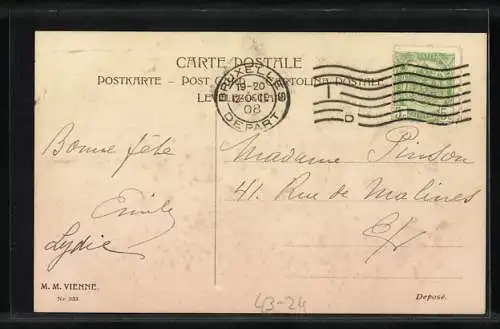 CARTE POSTALE
POSTKARTE – POST CARD – CARTOLINA POSTALE
BRUXELLES
19-20
12 OCT
08
DEPART
Bonne fête
Emile
Lydie
Madame Pinson
41. Rue de Malines
E/V
M. M. VIENNE.
Nr. 333.
Deposé.
43-24